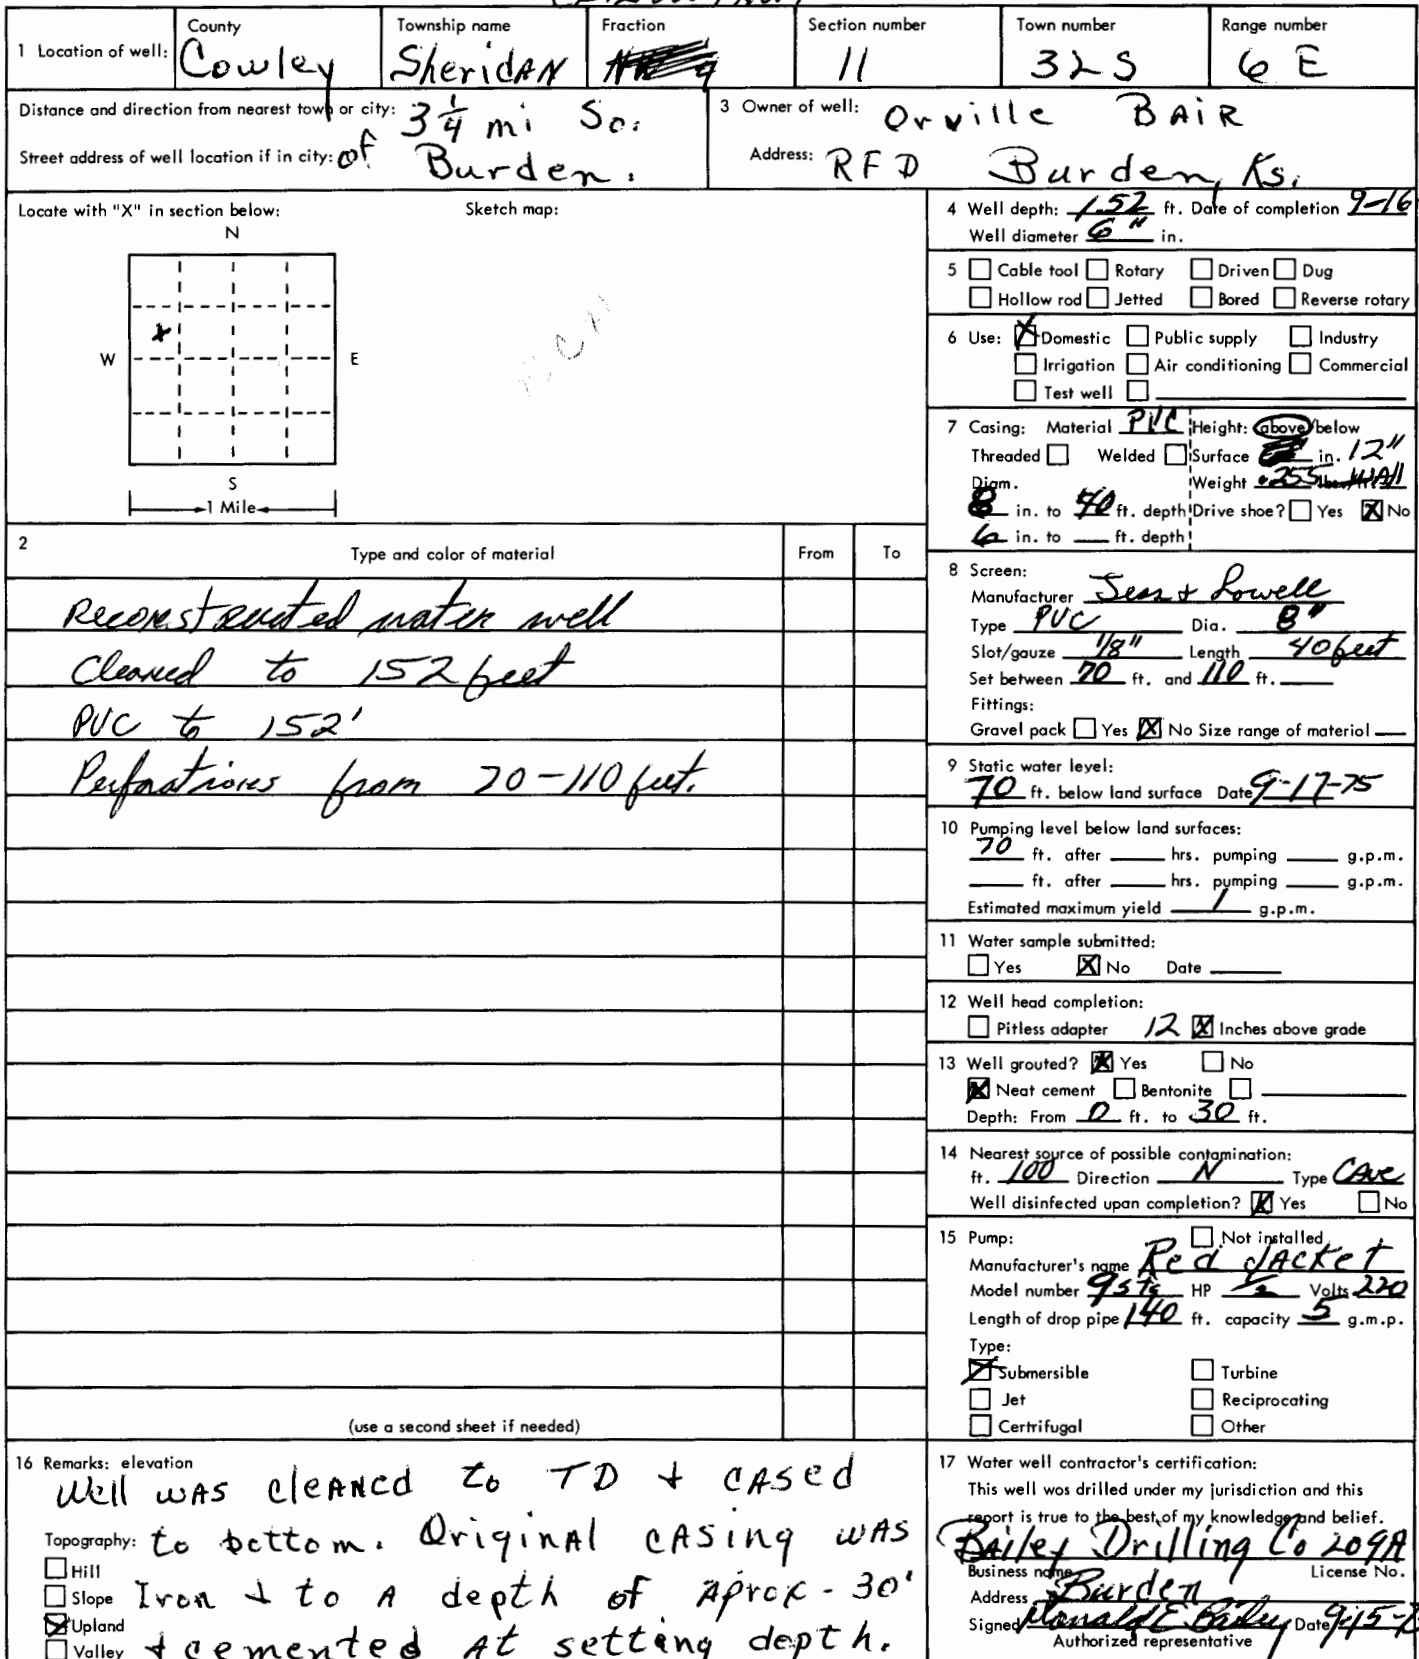 County Township name Fraction Section number Town number Range number
1 Location of well: Cowley Sheridan 11 32 S 6 E
Distance and direction from nearest town or city: 3 1/4 mi So.
Street address of well location if in city: of Burden.
3 Owner of well: Orville BAIR
Address: RFD Burden, Ks.
Locate with "X" in section below: Sketch map:
N
W E
S
1 Mile
2 Type and color of material From To
Reconstructed water well
Cleaned to 152 feet
PVC to 152'
Perforations from 70-110 feet.
(use a second sheet if needed)
4 Well depth: 152 ft. Date of completion 9-16
Well diameter 6" in.
5 Cable tool Rotary Driven Dug
Hollow rod Jetted Bored Reverse rotary
6 Use: Domestic Public supply Industry
Irrigation Air conditioning Commercial
Test well
7 Casing: Material PVC Height: above/below
Threaded Welded Surface in. 12"
Diam. Weight .255 Wall
8 in. to 40 ft. depth Drive shoe? Yes X No
6 in. to ft. depth
8 Screen:
Manufacturer Jess & Lowell
Type PVC Dia. 8"
Slot/gauze 1/8" Length 40 feet
Set between 70 ft. and 110 ft.
Fittings:
Gravel pack Yes X No Size range of material
9 Static water level:
70 ft. below land surface Date 9-17-75
10 Pumping level below land surfaces:
70 ft. after hrs. pumping g.p.m.
ft. after hrs. pumping g.p.m.
Estimated maximum yield 1 g.p.m.
11 Water sample submitted:
Yes X No Date
12 Well head completion:
Pitless adapter 12 X Inches above grade
13 Well grouted? X Yes No
X Neat cement Bentonite
Depth: From 0 ft. to 30 ft.
14 Nearest source of possible contamination:
ft. 100 Direction N Type CAVE
Well disinfected upon completion? X Yes No
15 Pump: Not installed
Manufacturer's name Red JACKET
Model number HP 1/2 Volts 220
Length of drop pipe 140 ft. capacity 5 g.m.p.
Type:
X Submersible Turbine
Jet Reciprocating
Certrifugal Other
16 Remarks: elevation
Well WAS cleANed to TD & CASed
Topography: to bottom. Original CASing WAS
Hill
Slope Iron & to A depth of Aprox - 30'
X Upland
Valley & cemented At setting depth.
17 Water well contractor's certification:
This well was drilled under my jurisdiction and this
report is true to the best of my knowledge and belief.
Bailey Drilling Co 209A
Business name License No.
Address Burden
Signed Donald E Bailey Date
Authorized representative